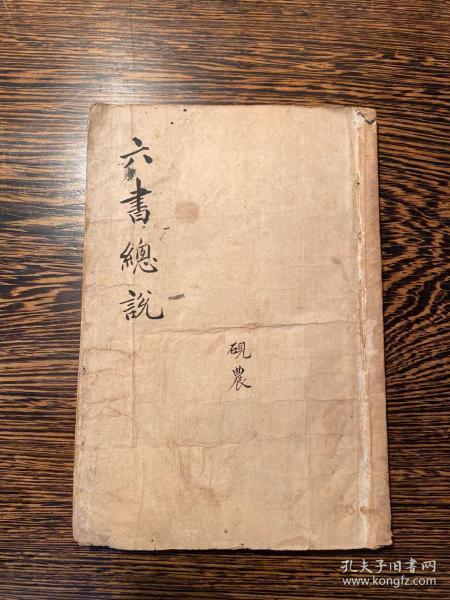 六書總說
硯農
孔夫子旧书网
www.kongfz.com